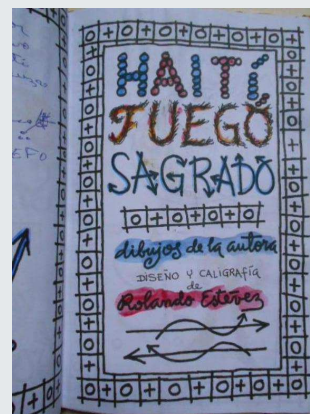 EFO
HAITÍ
FUEGO
SAGRADO
dibujos de la autora
DISEÑO Y CALIGRAFÍA
de
Rolando Estévez